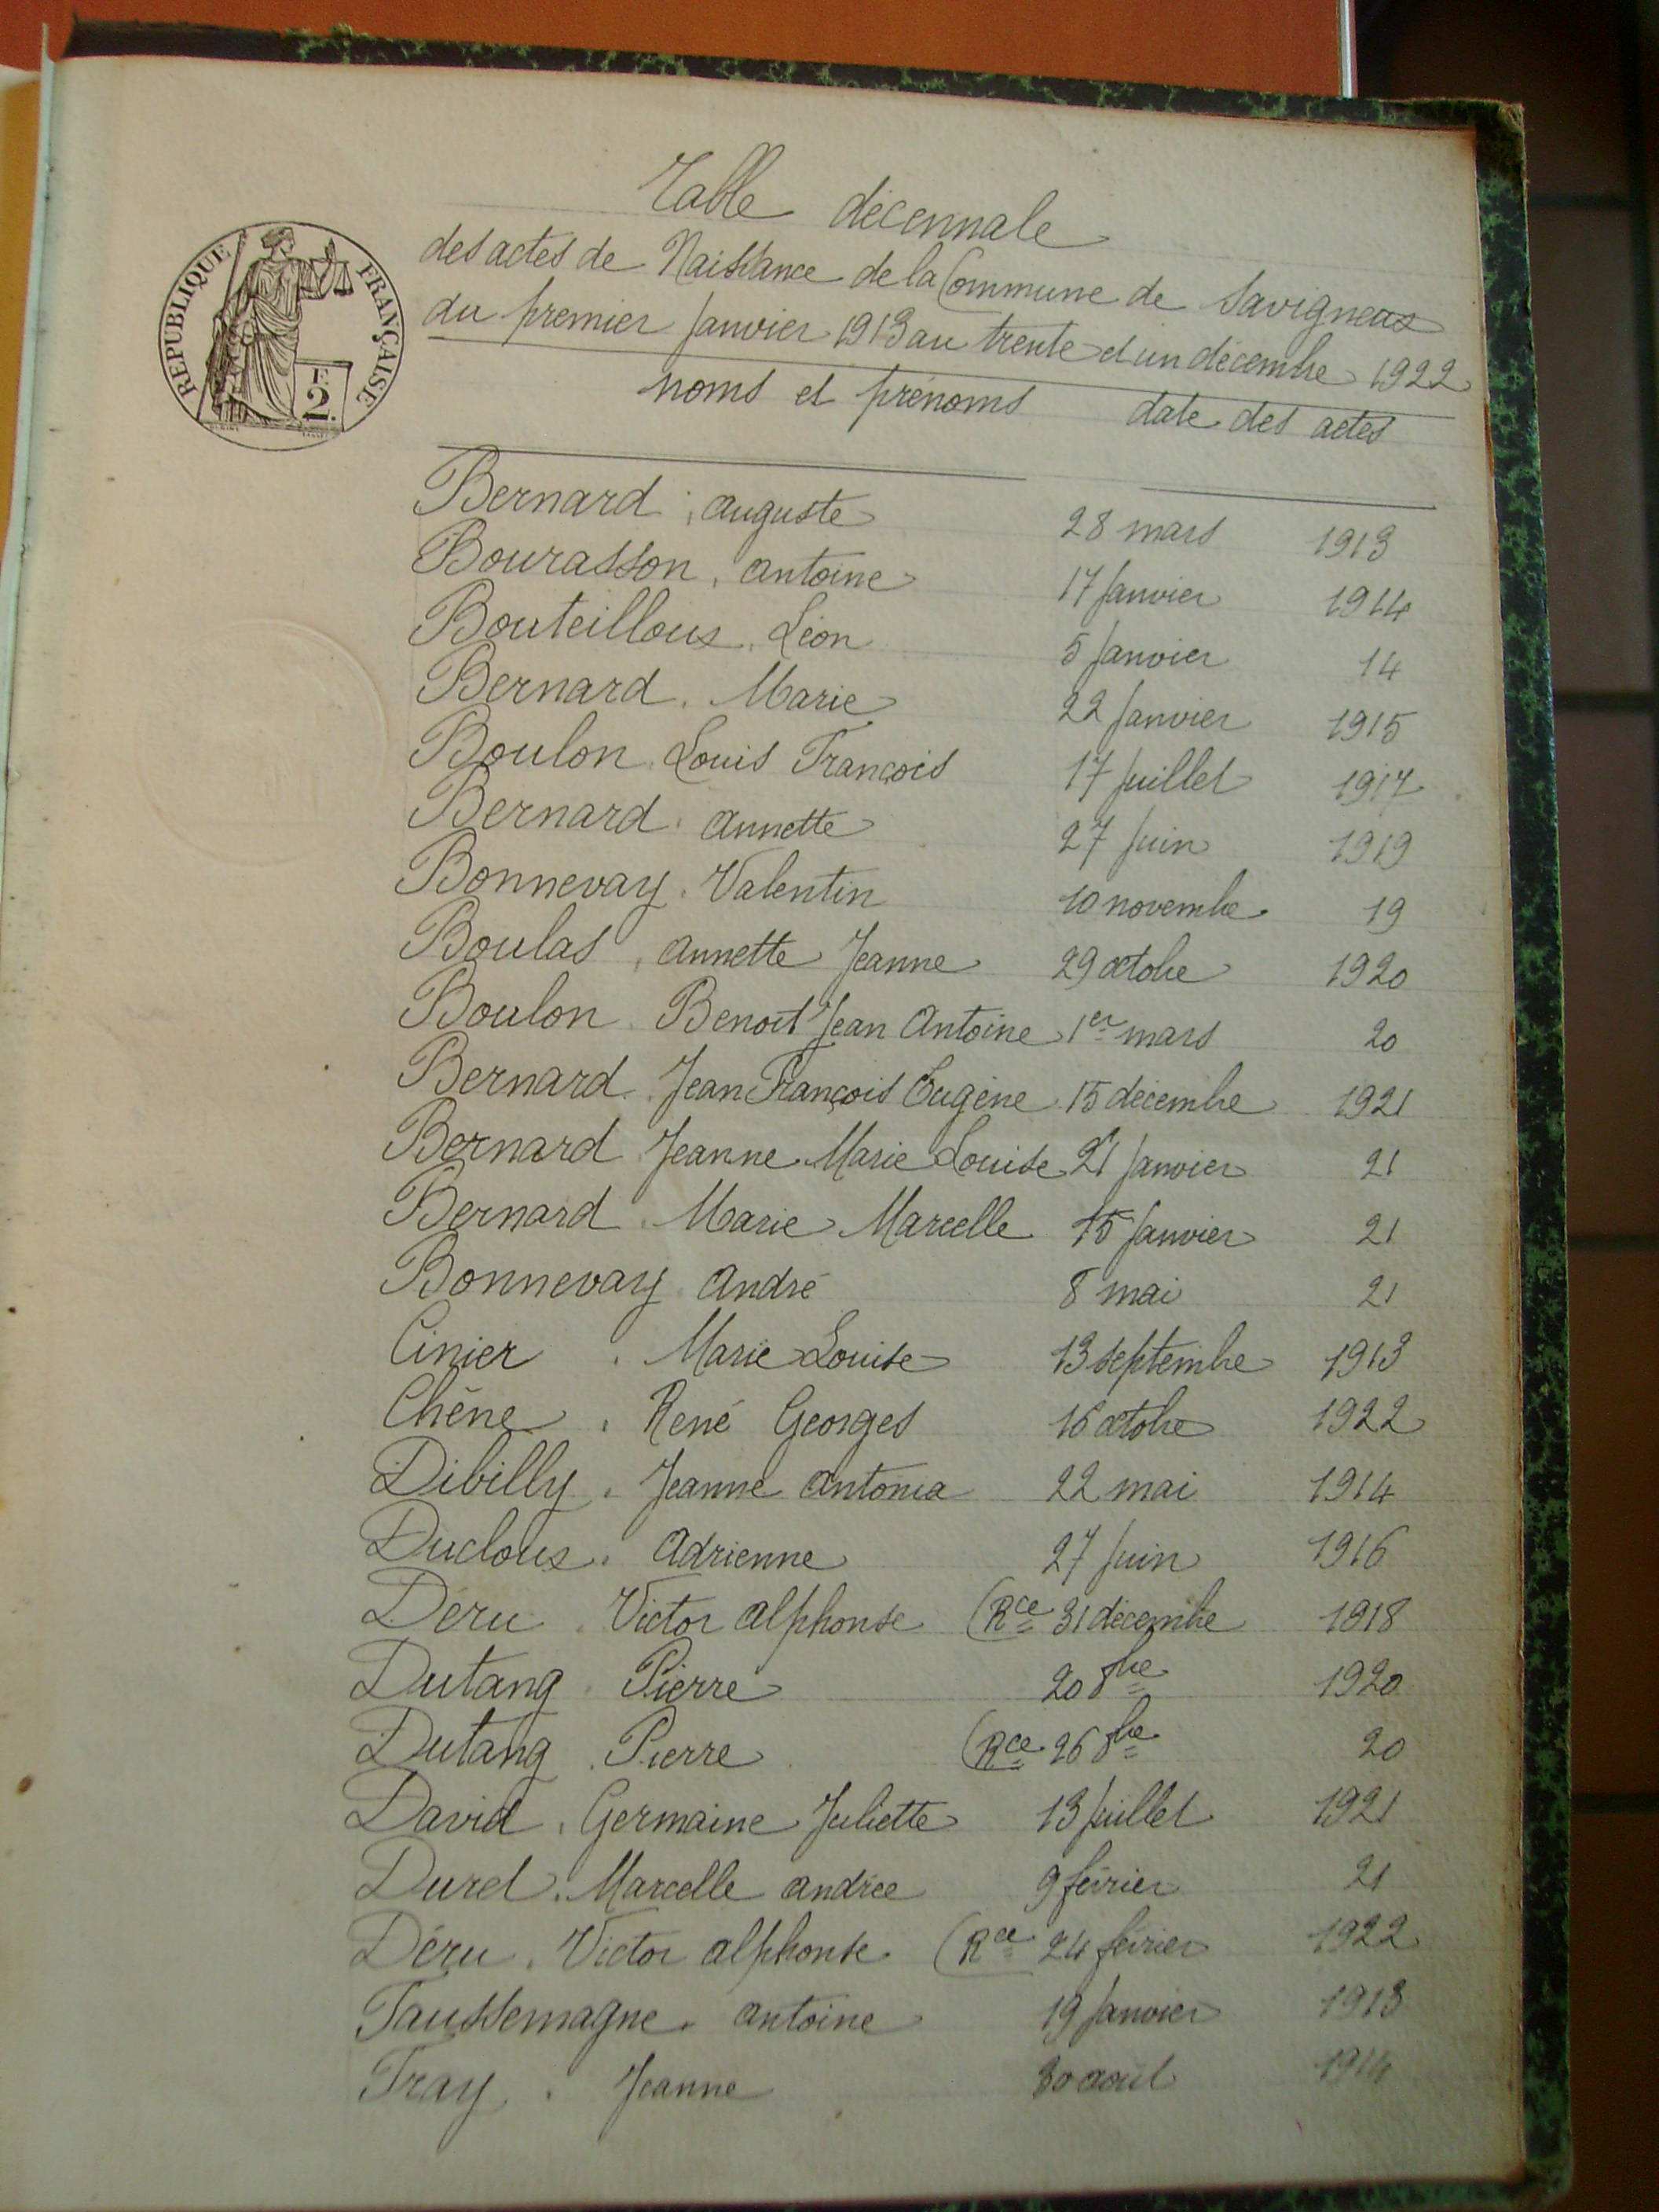 Table décennale
des actes de Naissance de la Commune de Savigneux
du premier Janvier 1913 au trente et un décembre 1922
noms et prénoms date des actes
REPUBLIQUE FRANÇAISE
2 F.
Bernard, Auguste 28 mars 1913
Bourasson, Antoine 17 Janvier 1914
Bouteilloux, Léon 5 Janvier 14
Bernard, Marie 22 Janvier 1915
Boulon, Louis François 17 Juillet 1917
Bernard, Annette 27 Juin 1919
Bonnevay, Valentin 10 novembre 19
Boulas, Annette Jeanne 29 octobre 1920
Boulon, Benoit Jean Antoine 1er mars 20
Bernard, Jean François Eugène 15 décembre 1921
Bernard, Jeanne Marie Louise 21 Janvier 21
Bernard, Marie Marcelle 15 Janvier 21
Bonnevay, André 8 mai 21
Cinier, Marie Louise 13 septembre 1913
Chêne, René Georges 16 octobre 1922
Dibilly, Jeanne Antonia 22 mai 1914
Ducloux, Adrienne 27 Juin 1916
Déru, Victor Alphonse (Rce 31 décembre 1918
Dutang, Pierre 20 8bre 1920
Dutang, Pierre (Rce 26 8bre 20
David, Germaine Juliette 13 Juillet 1921
Durel, Marcelle Andrée 9 février 21
Déru, Victor Alphonse (Rce 24 février 1922
Faussemagne, Antoine 19 Janvier 1913
Fray, Jeanne 30 août 1914